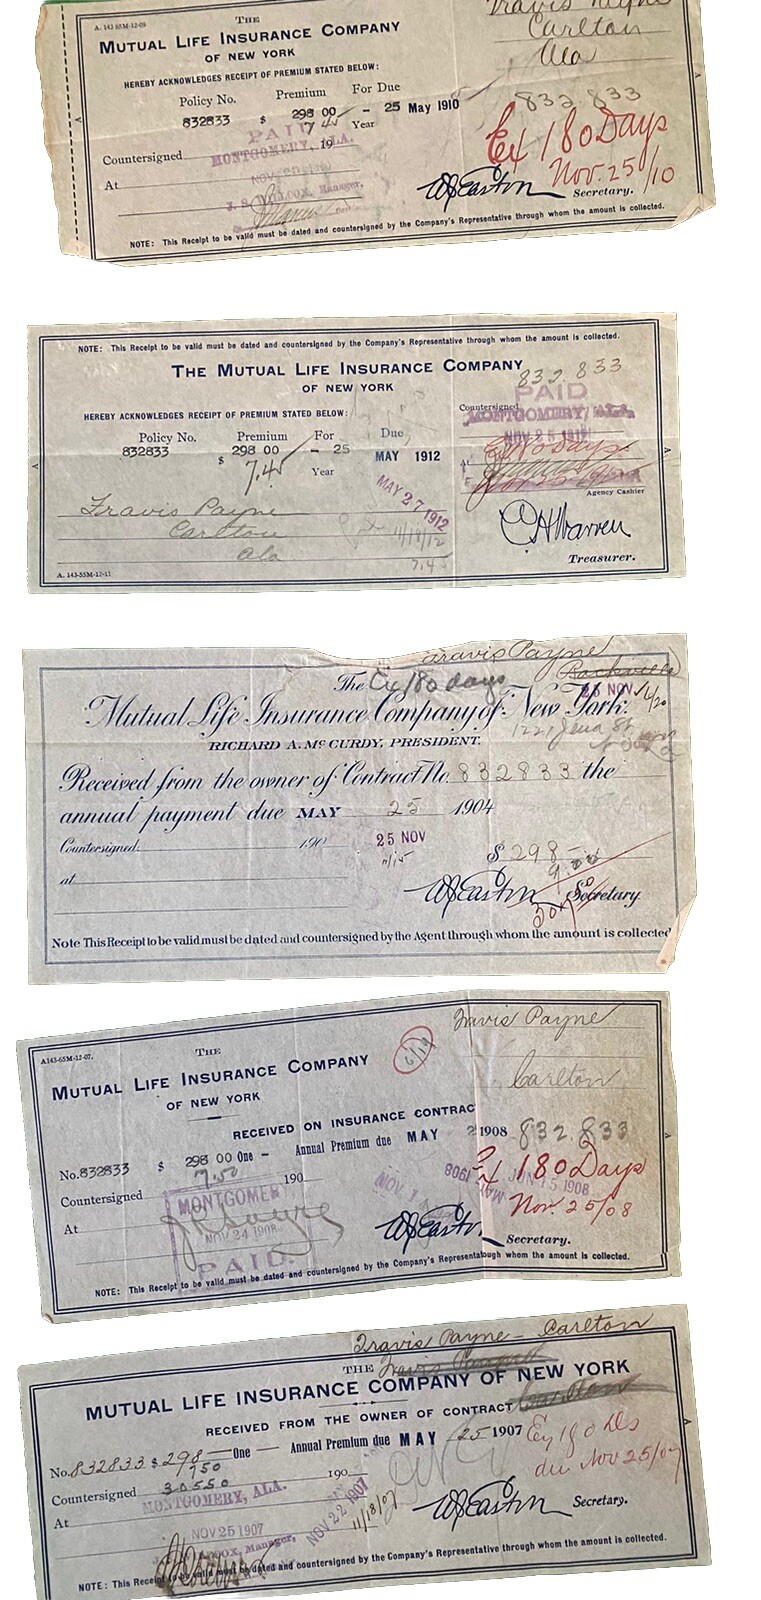 A. 143 65M-12-09
Travis Payne
THE
MUTUAL LIFE INSURANCE COMPANY
Carlton
OF NEW YORK
Ala
HEREBY ACKNOWLEDGES RECEIPT OF PREMIUM STATED BELOW:
Policy No. Premium For Due
832833 $ 298 00 - 25 May 1910
832 833
7.45 Year
PAID
Ex 180 Days
Countersigned 19
MONTGOMERY, ALA.
Nov. 25/10
At
J. S. WILCOX, Manager,
WJEaston Secretary.
NOTE: This Receipt to be valid must be dated and countersigned by the Company's Representative through whom the amount is collected.
NOTE: This Receipt to be valid must be dated and countersigned by the Company's Representative through whom the amount is collected.
THE MUTUAL LIFE INSURANCE COMPANY
832 833
OF NEW YORK
PAID
Countersigned
HEREBY ACKNOWLEDGES RECEIPT OF PREMIUM STATED BELOW:
MONTGOMERY, ALA.
Policy No. Premium For Due
NOV 25 1912
832833 $ 298 00 - 25 MAY 1912
Ex 180 Days
7.45 Year
MAY 27 1912
Agency Cashier
Travis Payne
Carlton
11/18/12
Ala
7.45
CHWarren
Treasurer.
A. 143-55M-12-11
Travis Payne
Rockville
The Ex 180 days
25 NOV
Mutual Life Insurance Company of New York.
RICHARD A. McCURDY, PRESIDENT.
Received from the owner of Contract No. 832833 the
annual payment due MAY 25 1904
Countersigned: 190
25 NOV
11/15
$ 298
at
WJEaston Secretary
Note This Receipt to be valid must be dated and countersigned by the Agent through whom the amount is collected
A143-65M-12-07.
Travis Payne
THE
MUTUAL LIFE INSURANCE COMPANY
OF NEW YORK
Carlton
RECEIVED ON INSURANCE CONTRAC
No. 832833 $ 298 00 One - Annual Premium due MAY 2 1908
832.833
7.50
Countersigned 190
Ex 180 Days
MAY 1908
JUN 15 1908
Nov. 25/08
MONTGOMERY
At
NOV 24 1908
PAID.
WJEaston Secretary.
NOTE: This Receipt to be valid must be dated and countersigned by the Company's Representative through whom the amount is collected.
Travis Payne - Carlton
THE Travis Payne
MUTUAL LIFE INSURANCE COMPANY OF NEW YORK
RECEIVED FROM THE OWNER OF CONTRACT
No. 832833 $ 298 - One - Annual Premium due MAY 25 1907
Ex 180 Ds
750
due Nov 25/07
Countersigned 30550 190
MONTGOMERY, ALA.
At
NOV 25 1907
NOV 22 1907
11/18/07
WJEaston Secretary.
NOTE: This Receipt to be valid must be dated and countersigned by the Company's Representative through whom the amount is collected.